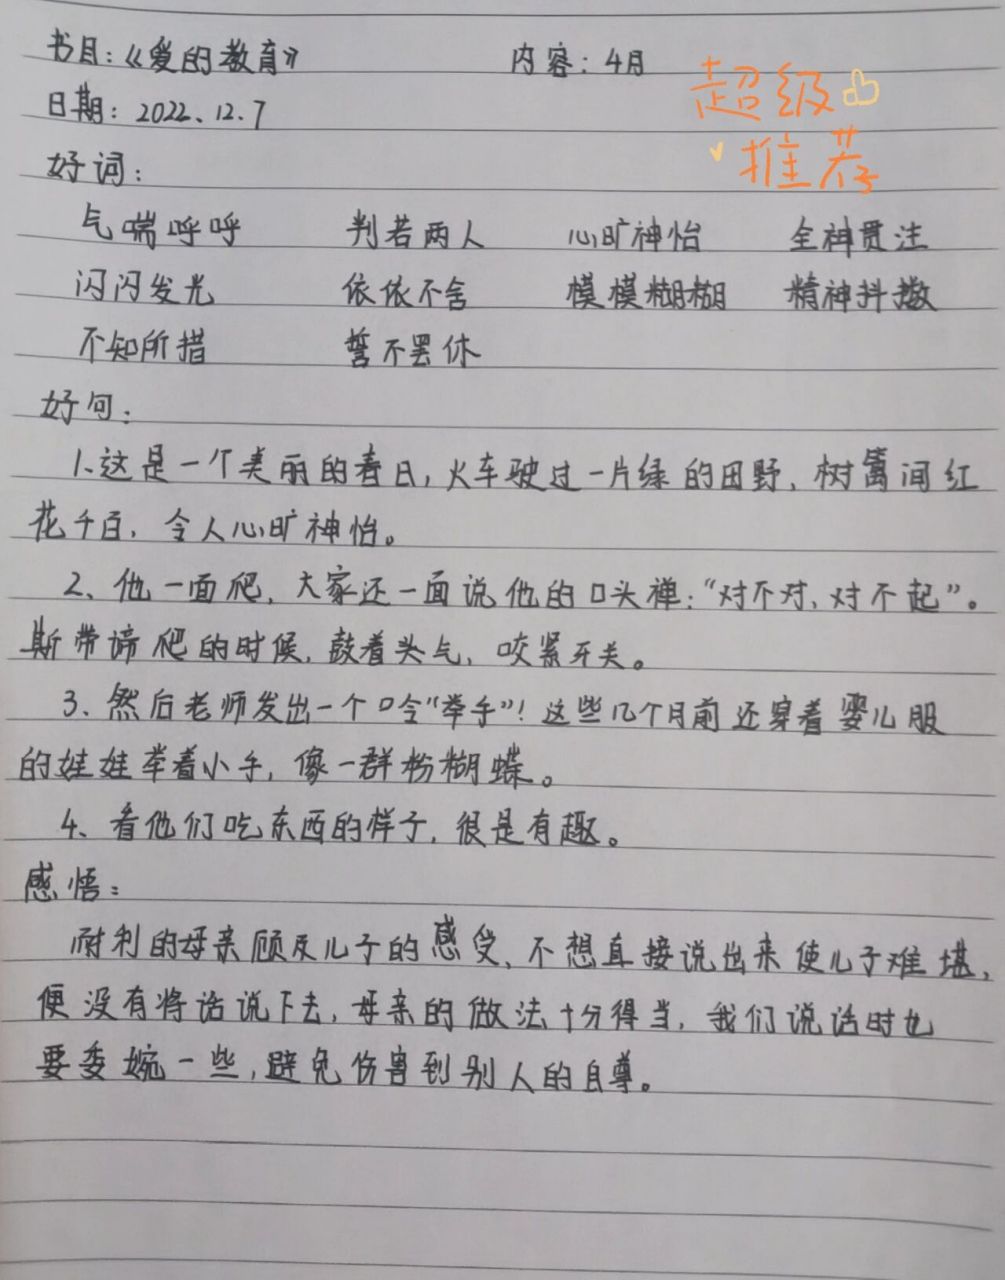 书目:《爱的教育》 内容:4月
超级
日期:2022.12.7
推荐
好词:
气喘呼呼 判若两人 心旷神怡 全神贯注
闪闪发光 依依不舍 模模糊糊 精神抖擞
不知所措 誓不罢休
好句:
1、这是一个美丽的春日,火车驶过一片绿的田野,树篱间红
花千百,令人心旷神怡。
2、他一面爬,大家还一面说他的口头禅:“对不对,对不起”。
斯带谛爬的时候,鼓着头气,咬紧牙关。
3、然后老师发出一个口令“举手”!这些几个月前还穿着婴儿服
的娃娃举着小手,像一群粉糊蝶。
4、看他们吃东西的样子,很是有趣。
感悟:
耐利的母亲顾及儿子的感受,不想直接说出来使儿子难堪,
便没有将话说下去,母亲的做法十分得当,我们说话时也
要委婉一些,避免伤害到别人的自尊。